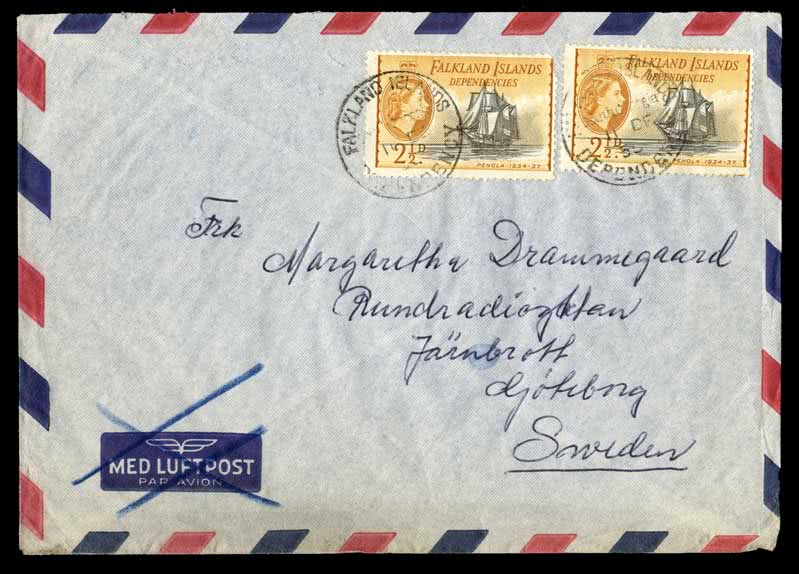 FALKLAND ISLANDS
DEPENDENCIES
2½D
PENOLA 1934-37
FALKLAND ISLANDS
DEPENDENCIES
2½D
PENOLA 1934-37
FALKLAND ISLANDS
DEPENDENCY
11 DE
DEPENDEN
Frk
Margaretha Drammegaard
Järnbrott
Göteborg
Sweden
MED LUFTPOST
PAR AVION